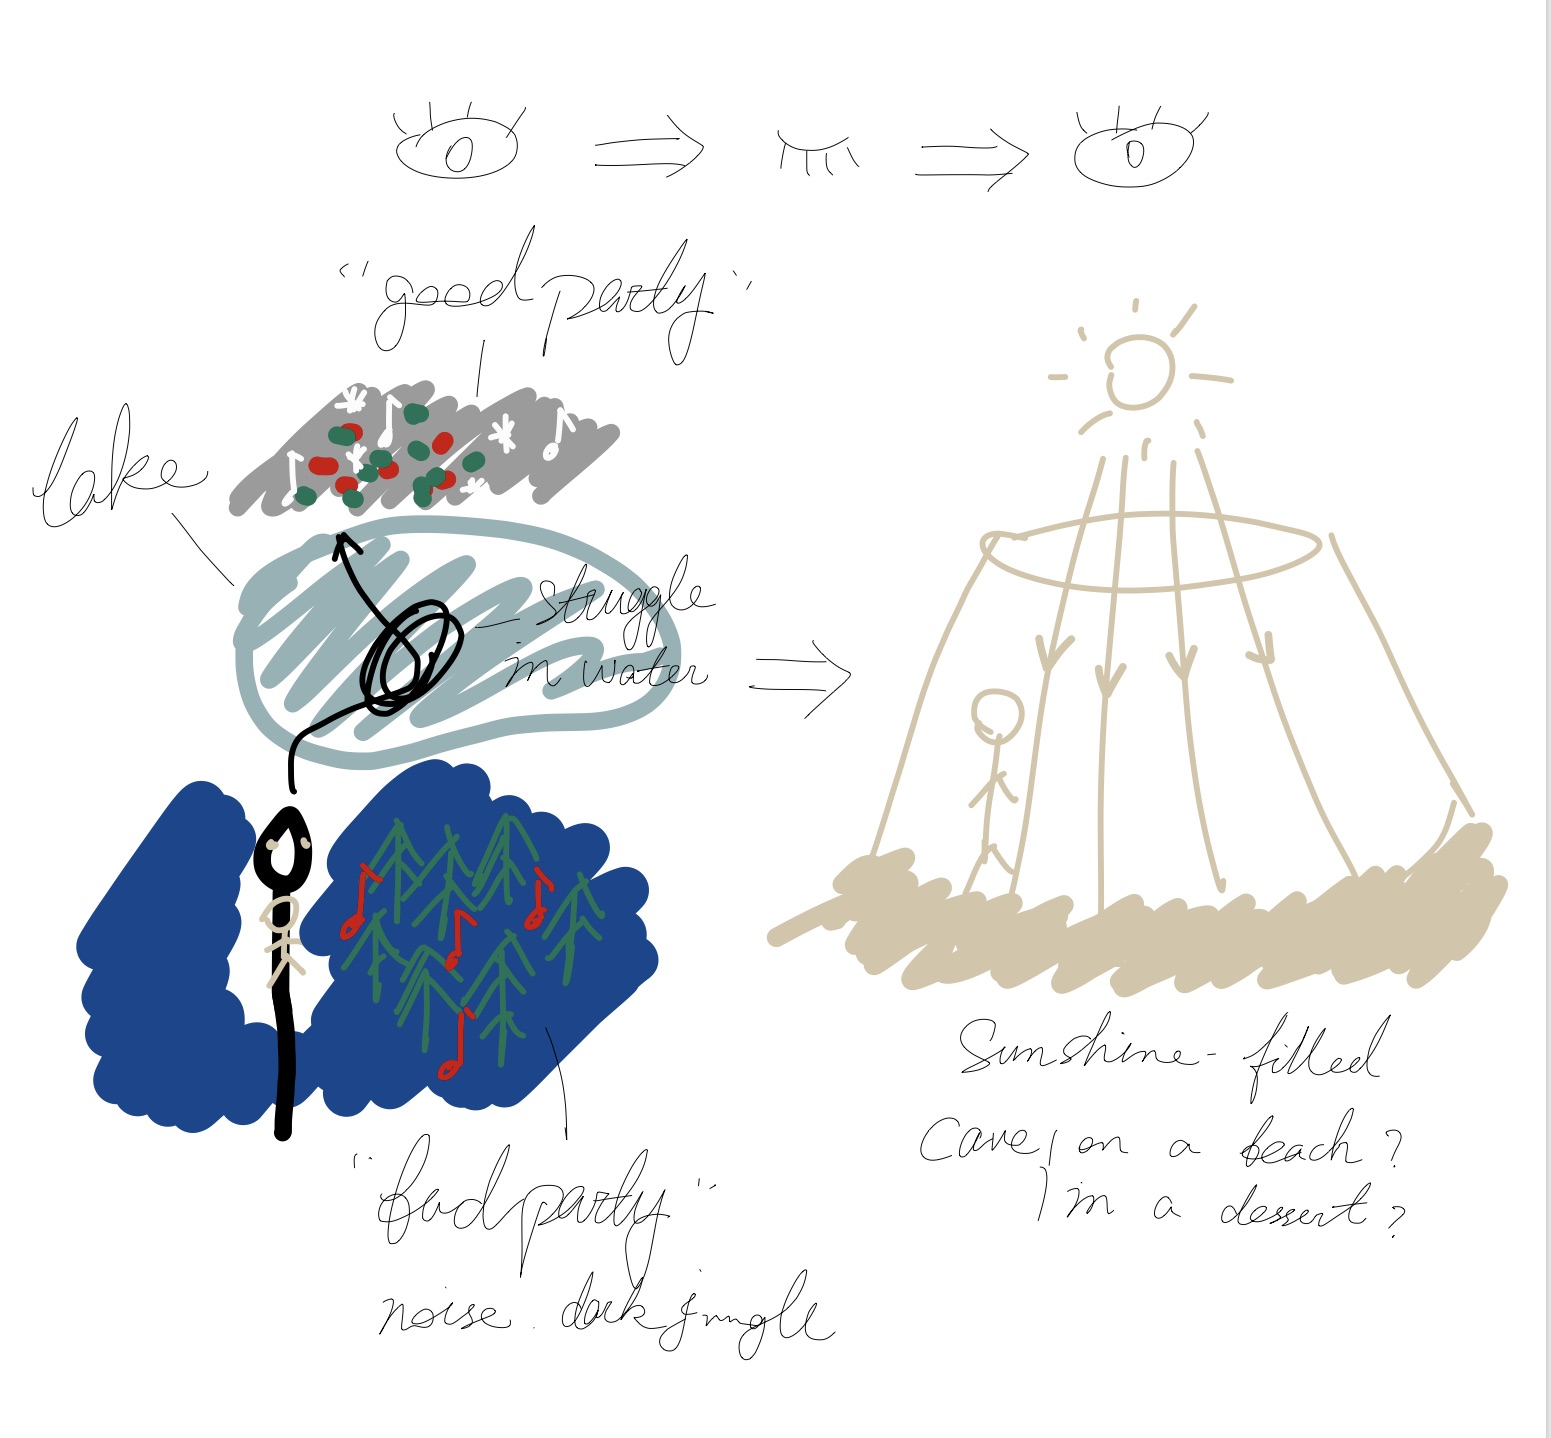 "good party"
lake
struggle
in water
"bad party"
noise. dark jungle
Sunshine-filled
Cave, on a beach?
in a dessert?